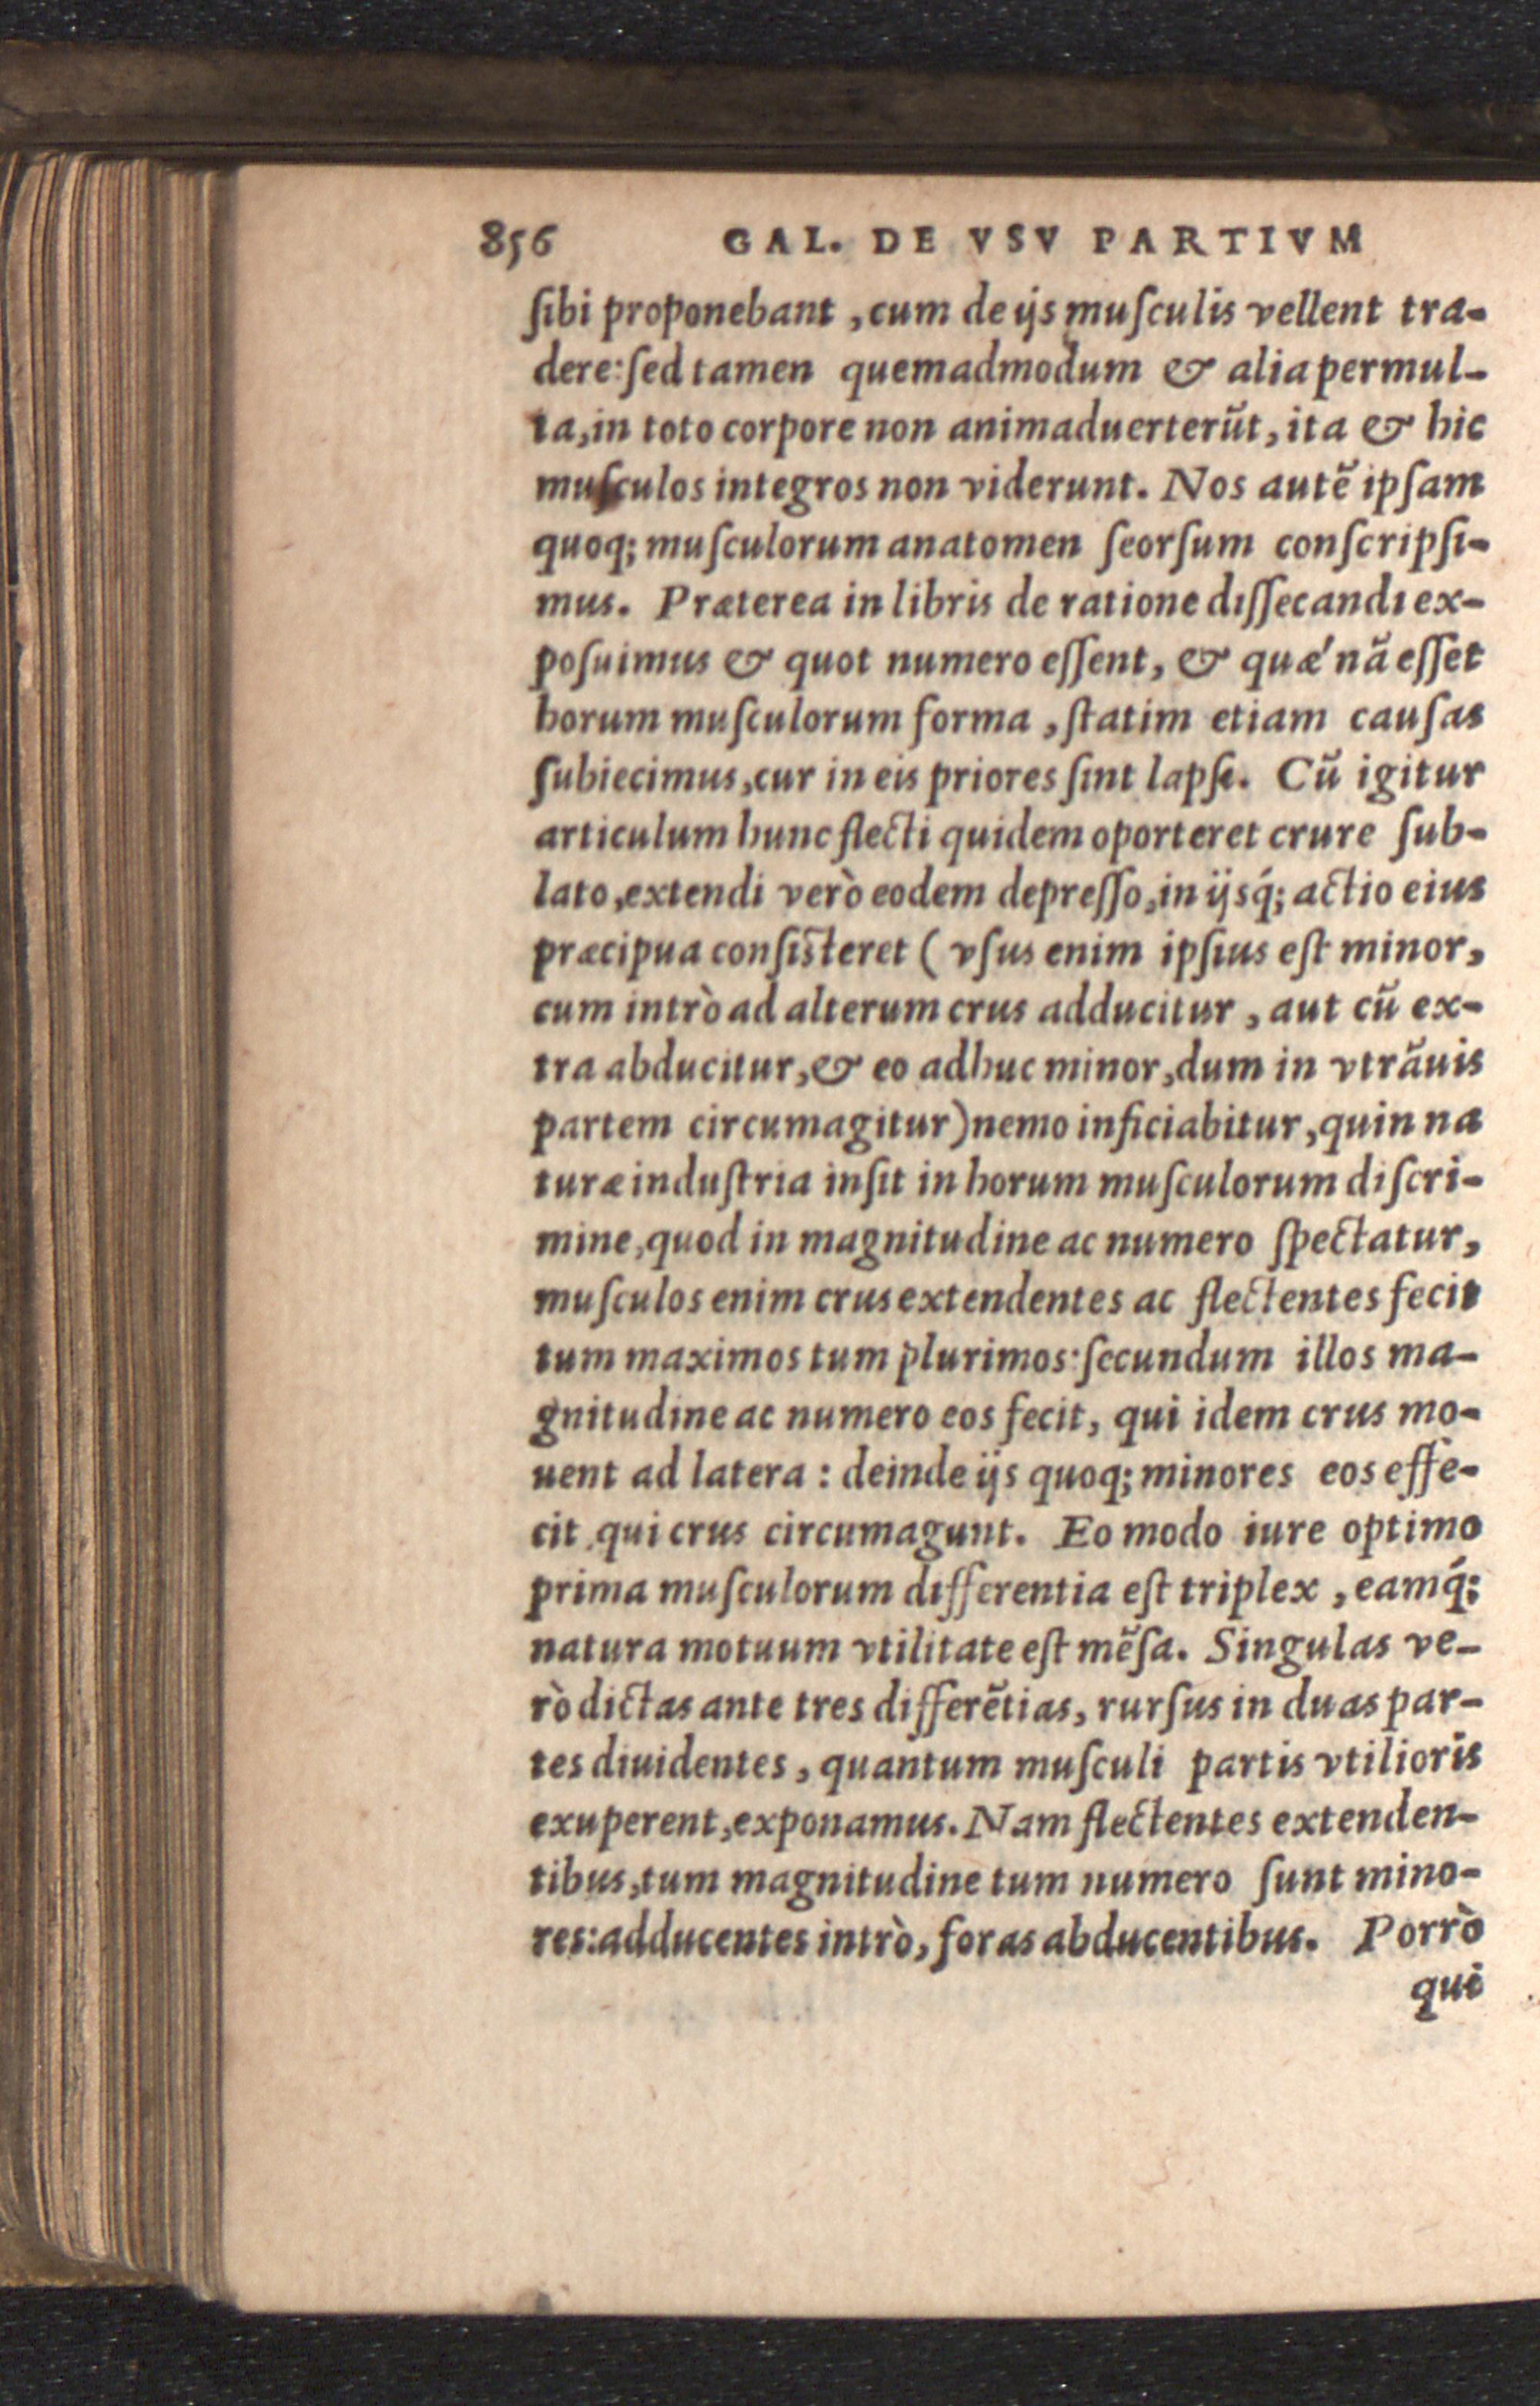 856 GAL. DE VSV PARTIVM
ſibi proponebant, cum de ijs muſculis vellent tra-
dere: ſed tamen quemadmodum & alia permul-
ta, in toto corpore non animaduerterūt, ita & hic
muſculos integros non viderunt. Nos autē ipſam
quoq; muſculorum anatomen ſeorſum conſcripſi-
mus. Præterea in libris de ratione diſſecandi ex-
poſuimus & quot numero eſſent, & quæ'nā eſſet
horum muſculorum forma, ſtatim etiam cauſas
ſubiecimus, cur in eis priores ſint lapſi. Cū igitur
articulum hunc flecti quidem oporteret crure ſub-
lato, extendi verò eodem depreſſo, in ijsq́; actio eius
præcipua conſiſteret (vſus enim ipſius eſt minor,
cum intrò ad alterum crus adducitur, aut cū ex-
tra abducitur, & eo adhuc minor, dum in vtrāuis
partem circumagitur) nemo inficiabitur, quin na
turæ induſtria inſit in horum muſculorum diſcri-
mine, quod in magnitudine ac numero ſpectatur,
muſculos enim crus extendentes ac flectentes fecit
tum maximos tum plurimos: ſecundum illos ma-
gnitudine ac numero eos fecit, qui idem crus mo-
uent ad latera: deinde ijs quoq; minores eos effe-
cit, qui crus circumagunt. Eo modo iure optimo
prima muſculorum differentia eſt triplex, eamq́;
natura motuum vtilitate eſt mēſa. Singulas ve-
rò dictas ante tres differētias, rurſus in duas par-
tes diuidentes, quantum muſculi partis vtilioris
exuperent, exponamus. Nam flectentes extenden-
tibus, tum magnitudine tum numero ſunt mino-
res: adducentes intrò, foras abducentibus. Porrò
qui